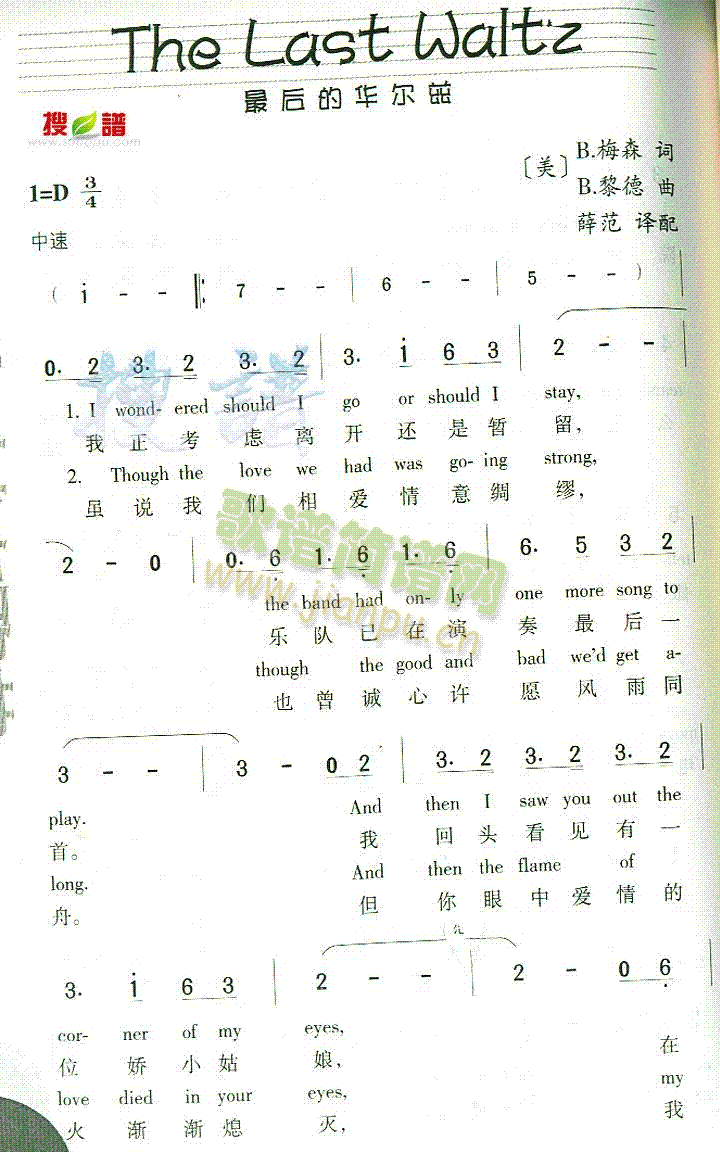 The Last Waltz
最后的华尔兹
搜谱
[美] B.梅森 词
B.黎德 曲
薛范 译配
1=D 3/4
中速
( i - - ‖: 7 - - | 6 - - | 5 - - ) |
0. 2 3. 2 3. 2 | 3. i 6 3 | 2 - - |
1. I wond- ered should I go or should I stay,
我 正 考 虑 离 开 还 是 暂 留,
2. Though the love we had was go- ing strong,
虽 说 我 们 相 爱 情 意 绸 缪,
歌谱简谱网
www.jianpu.cn
2 - 0 | 0. 6 1. 6 1. 6 | 6. 5 3 2 |
the band had on- ly one more song to
乐 队 已 在 演 奏 最 后 一
though the good and bad we'd get a-
也 曾 诚 心 许 愿 风 雨 同
3 - - | 3 - 0 2 | 3. 2 3. 2 3. 2 |
play. And then I saw you out the
首。 我 回 头 看 见 有 一
long. And then the flame of
舟。 但 你 眼 中 爱 情 的
3. i 6 3 | 2 - - | 2 - 0 6 |
cor- ner of my eyes,
位 娇 小 姑 娘, 在
love died in your eyes, my
火 渐 渐 熄 灭, 我